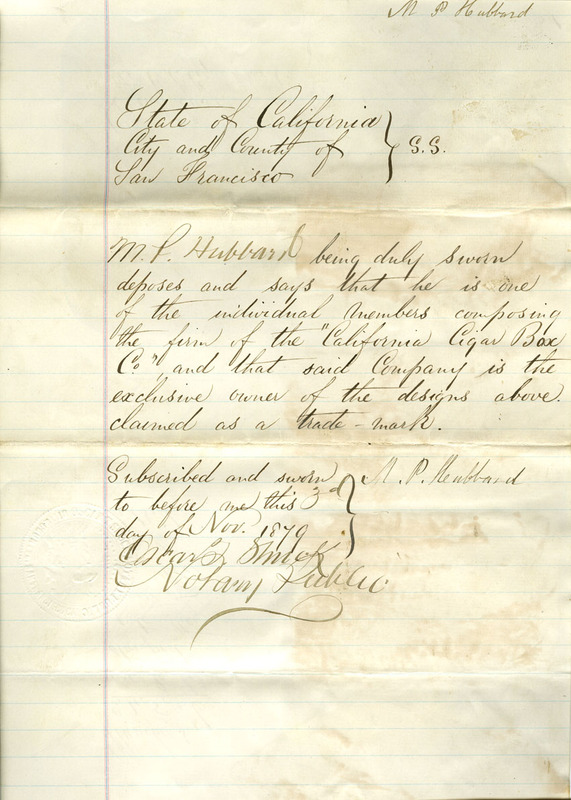 M P Hubbard
State of California
City and County of } S.S.
San Francisco
M. P. Hubbard being duly sworn
deposes and says that he is one
of the individual members composing
the firm of the "California Cigar Box
Co" and that said Company is the
exclusive owner of the designs above
claimed as a trade-mark.
Subscribed and sworn } M. P. Hubbard
to before me this 3d
day of Nov. 1879
Notary Public